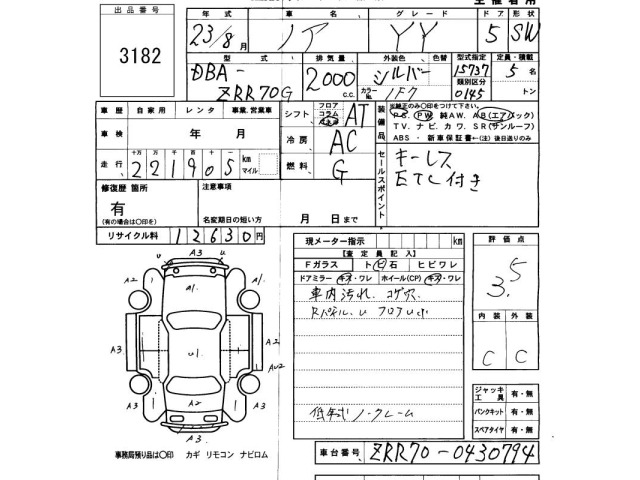 出品番号
3182
年式 車名 グレード ドア 形状
23/8月 ノア YY 5 SW
型式 排気量 外装色 色替 型式指定 定員・積載
DBA-
ZRR70G
2000 c.c.
シルバー
カラーNo. 1F7
15737
類別区分
0145
5名
トン
車歴 自家用 レンタ 事業、営業車
車検 年 月
走行 十万 万 千 百 十 km
221905 マイル
シフト フロア コラム AT
冷房 AC
燃料 G
装備品
※純正のみ○印をつけて下さい。
P.S. PW 純AW. AB(エアバック)
T.V. ナビ. カワ. SR(サンルーフ)
ABS ・ 新車保証書←(注)後日送りのみ
セールスポイント
キーレス
ETC付き
修復歴 箇所
有
(有の場合は○印を)
注意事項
名変期日の短い方 月 日まで
リサイクル料 12630円
現メーター指示 km
【査定員記入】
Fガラス ト ビ 石 ヒビワレ
ドアミラー キズ・ワレ ホイール(CP) キズ・ワレ
車内汚れ. コゲ穴.
Rパネル. U フロアUP
低年式ノークレーム
評価点
3.5
内装 外装
C C
ジャッキ工具 有・無
パンクキット 有・無
スペアタイヤ 有・無
U A3 U
A2 A1. A1
A3 U1. A2
AU2
A3 1 A2 1 A3
A3.
事務局預り品は○印 カギ リモコン ナビロム
車台番号 ZRR70-0430794